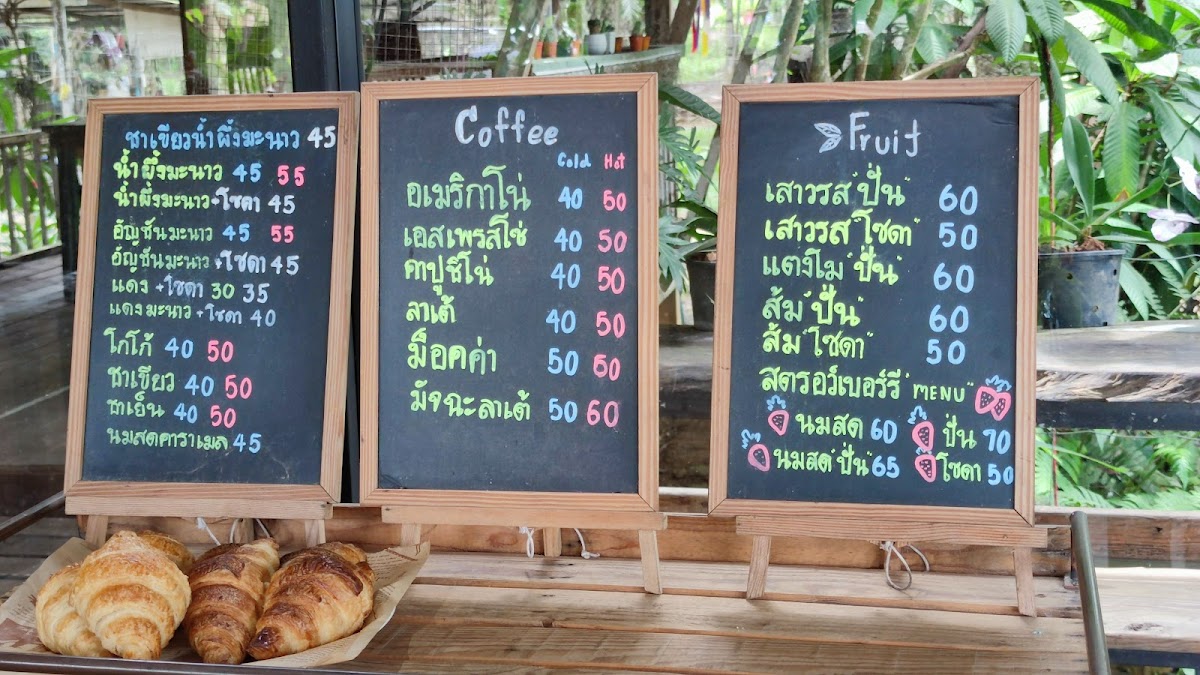 ชาเขียวน้ำผึ้งมะนาว 45
น้ำผึ้งมะนาว 45 55
น้ำผึ้งมะนาว+โซดา 45
อัญชันมะนาว 45 55
อัญชันมะนาว+โซดา 45
แดง+โซดา 30 35
แดงมะนาว+โซดา 40
โกโก้ 40 50
ชาเขียว 40 50
ชาเย็น 40 50
นมสดคาราเมล 45
Coffee
Cold Hot
อเมริกาโน่ 40 50
เอสเพรสโซ่ 40 50
คาปูชิโน่ 40 50
ลาเต้ 40 50
ม็อคค่า 50 60
มัจฉะลาเต้ 50 60
Fruit
เสาวรส "ปั่น" 60
เสาวรส "โซดา" 50
แตงโม "ปั่น" 60
ส้ม "ปั่น" 60
ส้ม "โซดา" 50
สตรอว์เบอร์รี่ "MENU"
นมสด 60 ปั่น 70
นมสด "ปั่น" 65 โซดา 50